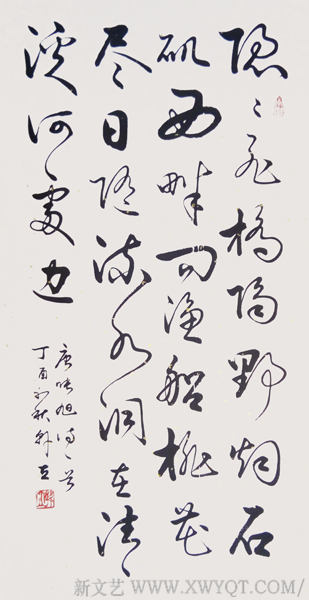 隐隐飞橋隔野烟石
矶西畔问渔船桃花
尽日随流水洞在清
溪何處边
唐张旭诗一首
丁酉初秋
新文艺 WWW.XWYQT.COM/